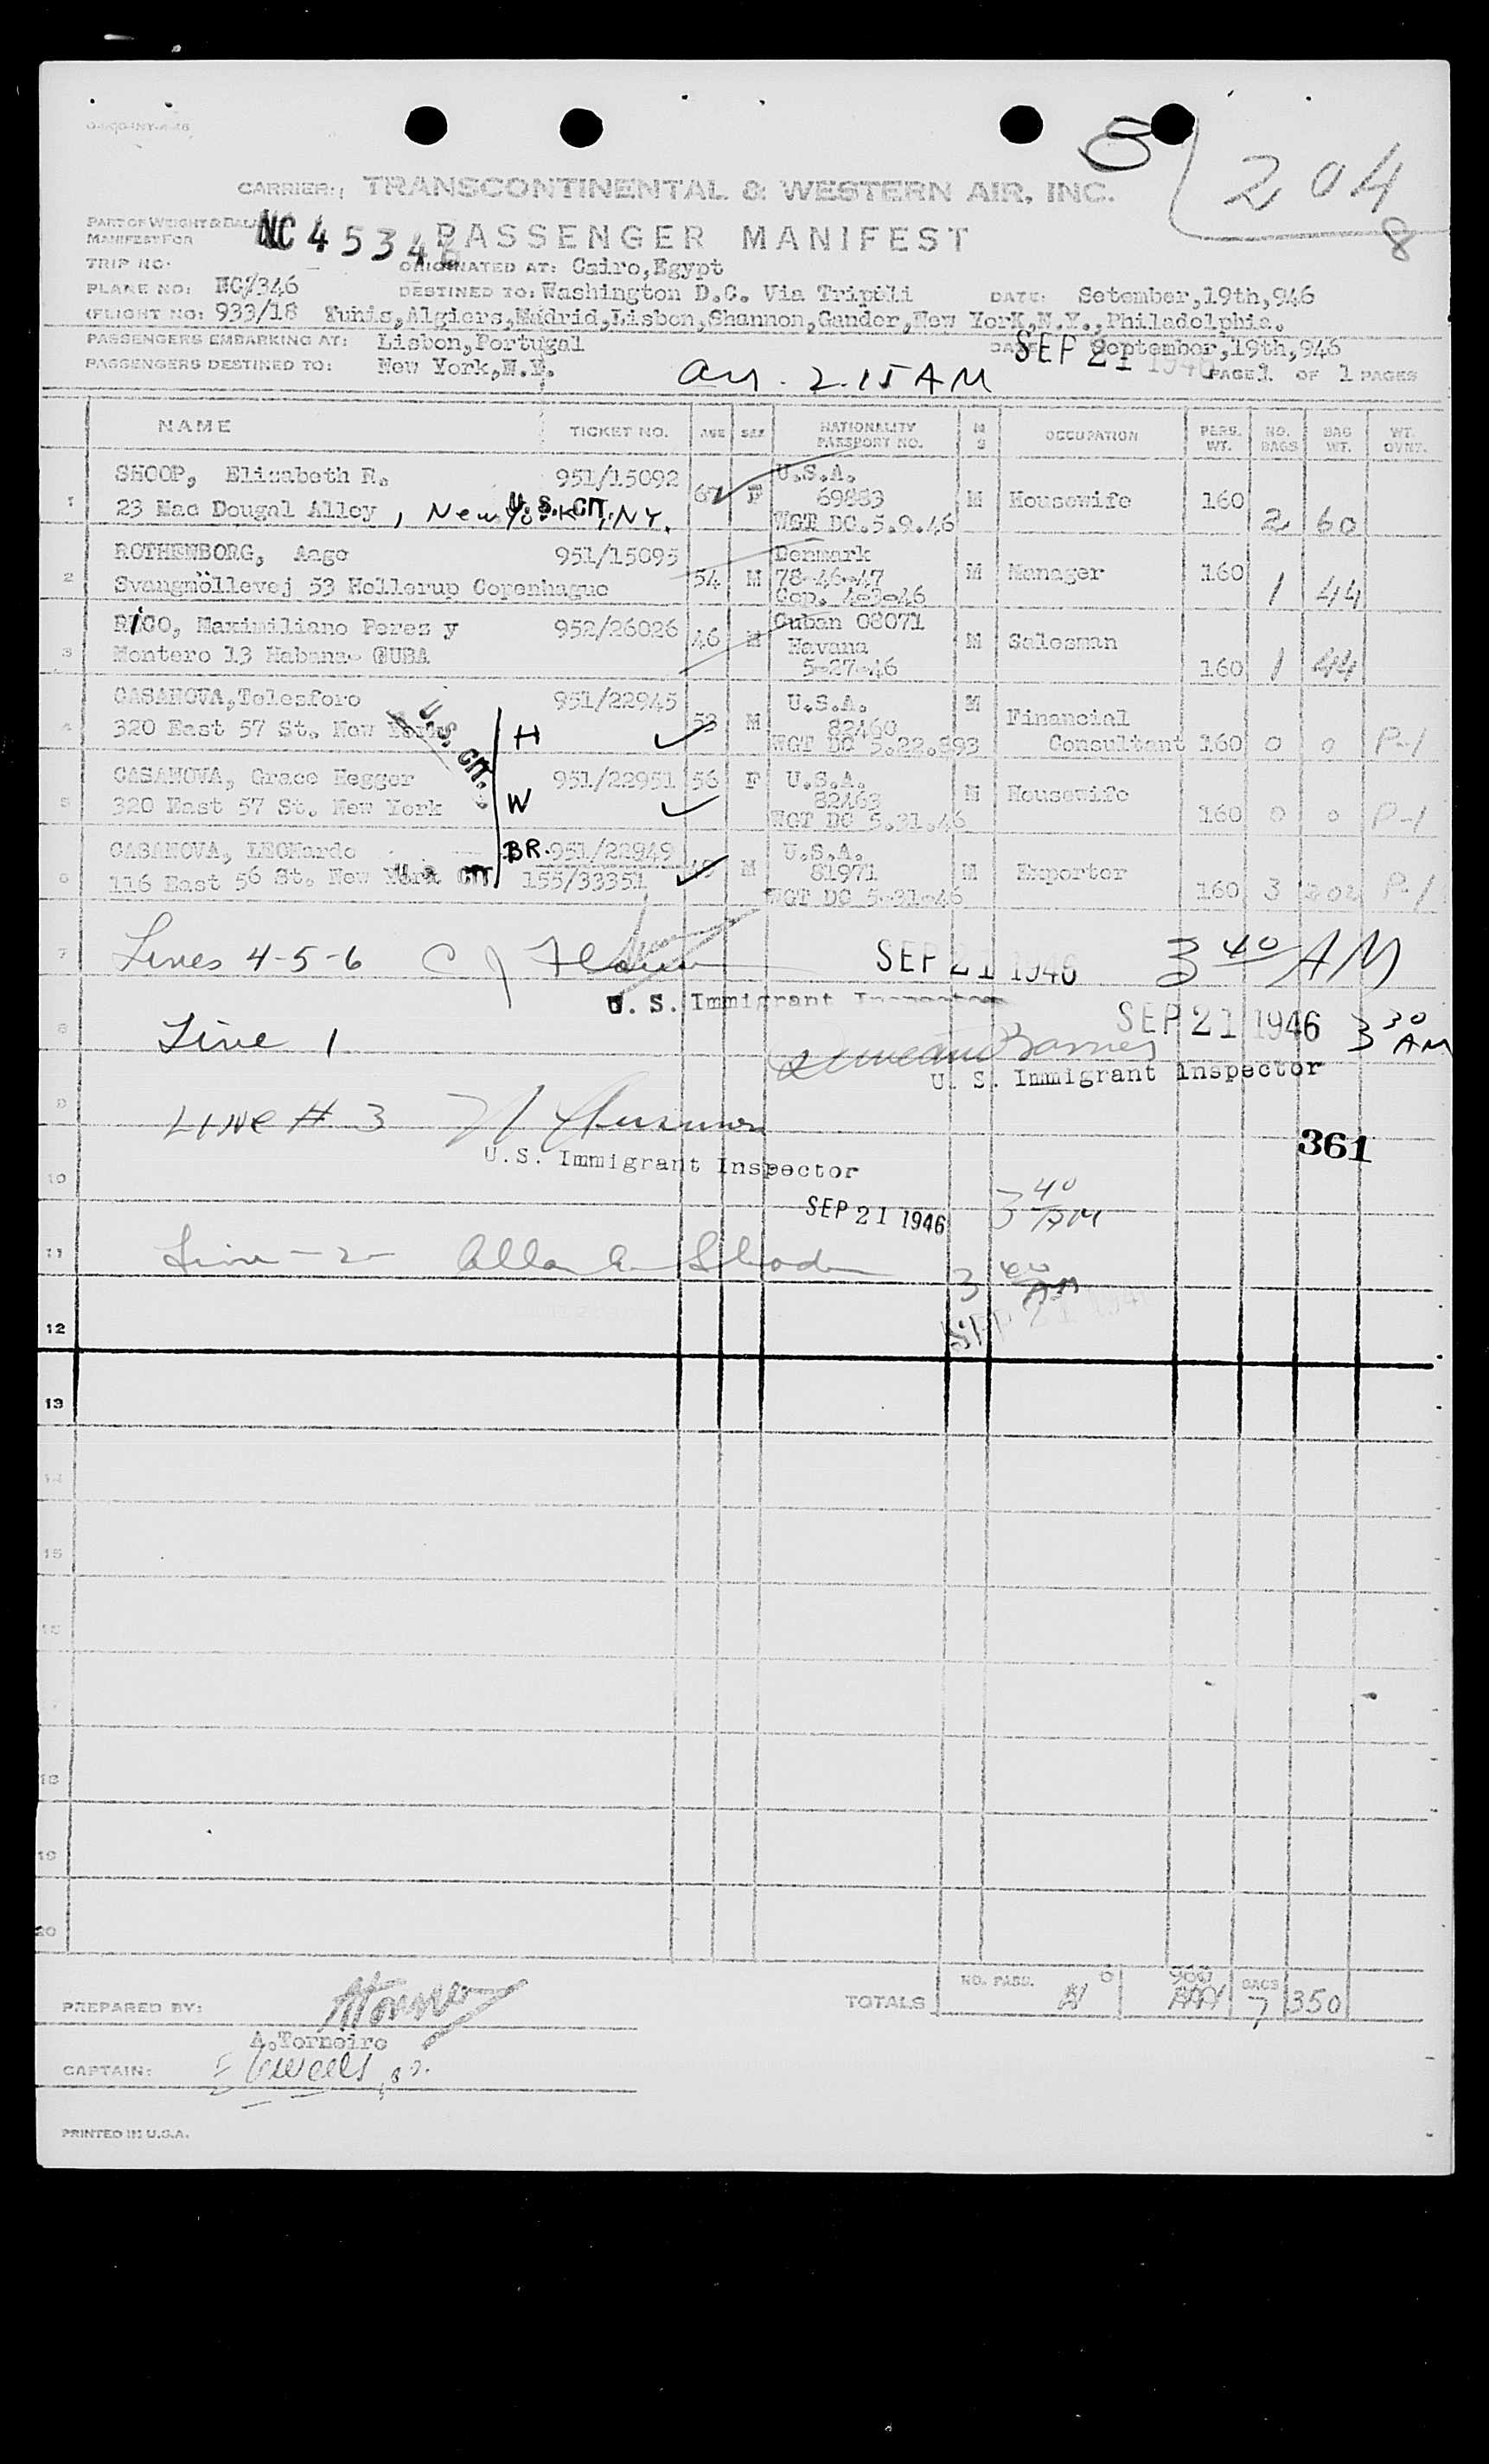 8
204
8
CARRIER: TRANSCONTINENTAL & WESTERN AIR, INC.
PART OF WEIGHT & BAL.
MANIFEST FOR
NC 45346
PASSENGER MANIFEST
TRIP NO.
ORIGINATED AT: Cairo,Egypt
PLANE NO: NC/346
DESTINED TO: Washington D.C. Via Tripoli
DATE: Setember,19th,946
(FLIGHT NO: 933/18 Tunis,Algiers,Madrid,Lisbon,Shannon,Gander,New York,N.Y.,Philadelphia.
PASSENGERS EMBARKING AT: Lisbon,Portugal
DATE: September,19th,946
SEP 21 1946
PASSENGERS DESTINED TO: New York,N.Y.
arr. 2.15 AM
PAGE 1 OF 1 PAGES
NAME TICKET NO. AGE SEX NATIONALITY PASSPORT NO. M S OCCUPATION PERS. WT. NO. BAGS BAG WT. WT. OVRT.
SHOOP, Elisabeth R. 951/15092 U.S.A.
1 67 F 69883 M Housewife 160
23 Mac Dougal Alley, New York, NY. U.S. CIT. WGT DC.5.9.46 2 60
ROTHENBORG, Aage 951/15095 Denmark
2 54 M 78-46-47 M Manager 160
Svangmöllevej 53 Hellerup Copenhague Cop. 4-3-46 1 44
RICO, Maximiliano Perez y 952/26026 Cuban 08071
3 46 M Havana M Salesman
Montero 13 Habana- CUBA 5-27-46 160 1 44
CASANOVA,Telesforo 951/22945 U.S.A. M
4 53 M 82460 Financial
320 East 57 St. New York U.S. CIT. H WGT DC 5.22.893 Consultant 160 0 0 P-1
CASANOVA, Grace Hegger 951/22951 56 F U.S.A.
5 82463 M Housewife
320 East 57 St. New York W WGT DC 5.21.46 160 0 0 P-1
CASANOVA, LEONardo BR. 951/22949 U.S.A.
6 116 East 56 St. New York U.S. CIT. 155/33351 49 M 81971 M Exporter
WGT DC 5-21-46 160 3 202 P-1
7 Lines 4-5-6 SEP 21 1946 3 40 AM
U. S. Immigrant Inspector
8 Line 1 SEP 21 1946 3 30 AM
U. S. Immigrant Inspector
9 LINE # 3
361
U.S. Immigrant Inspector
10
SEP 21 1946 3 40 AM
11 Line -2- 3 40 AM
SEP 21 1946
12
13
14
15
16
18
19
20
TOTALS NO. PASS. 6 960 BAGS 7 350
PREPARED BY:
A.Torneiro
CAPTAIN:
PRINTED IN U.S.A.